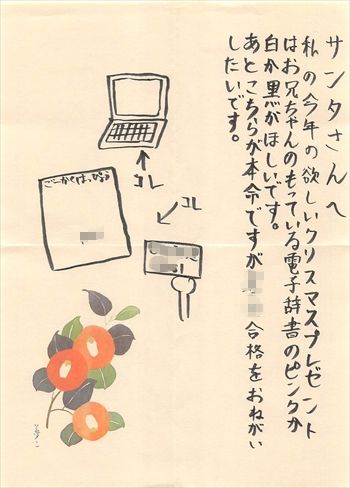 サンタさんへ
私の今年の欲しいクリスマスプレゼント
はお兄ちゃんのもっている電子辞書のピンクか
白か黒がほしいです。
あとこちらが本命ですが 合格をおねがい
したいです。
コレ
コレ
ごーかくはっぴょう